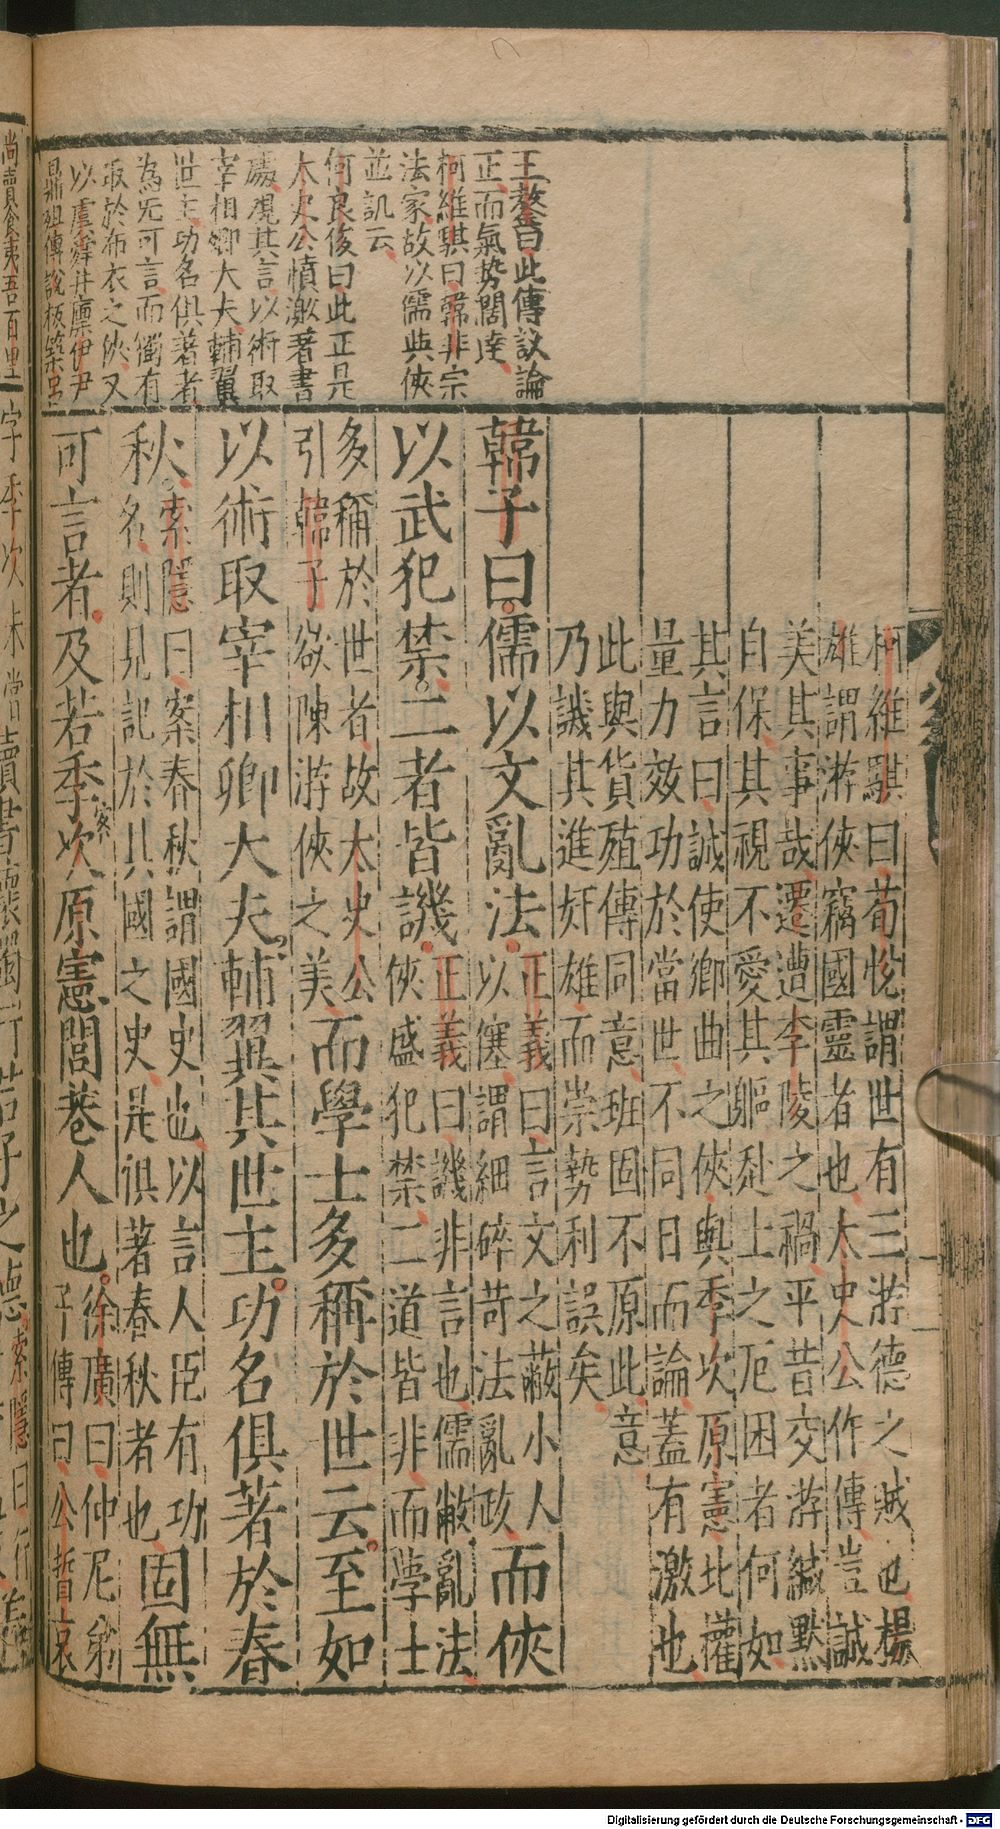 王鏊曰此傳議論
正而氣勢闊達
柯維騏曰韓非宗
法家故以儒與俠
並訊云
何良俊曰此正是
太史公憤激著書
處觀其言以術取
宰相卿大夫輔翼
世主功名俱著者
為旡可言而獨有
取於布衣之俠又
以虞舜井廩伊尹
鼎俎傅說板築呂
尚賣食夷吾百里
柯維騏曰荀悅謂世有三游德之賊也楊
雄謂游俠竊國靈者也太史公作傳豈誠
美其事哉遷遭李陵之禍平昔交游緘默
自保其視不愛其軀赴士之厄困者何如
其言曰誠使鄉曲之俠與季次原憲比權
量力效功於當世不同日而論蓋有激也
此與貨殖傳同意班固不原此意
乃譏其進奸雄而崇勢利誤矣
韓子曰儒以文亂法正義曰言文之蔽小人以塞謂細碎苛法亂政而俠
以武犯禁二者皆譏正義曰譏非言也儒敝亂法俠盛犯禁二道皆非而學士
多稱於世者故太史公引韓子欲陳游俠之美而學士多稱於世云至如
以術取宰相卿大夫輔翼其世主功名俱著於春
秋索隱曰案春秋謂國史也以言人臣有功名則見記於其國之史是俱著春秋者也固無
可言者及若季次原憲閭巷人也徐廣曰仲尼弟子傳曰公晳哀
字季次未嘗讀書懷獨行君子之德索隱曰行
Digitalisierung gefördert durch die Deutsche Forschungsgemeinschaft - DFG